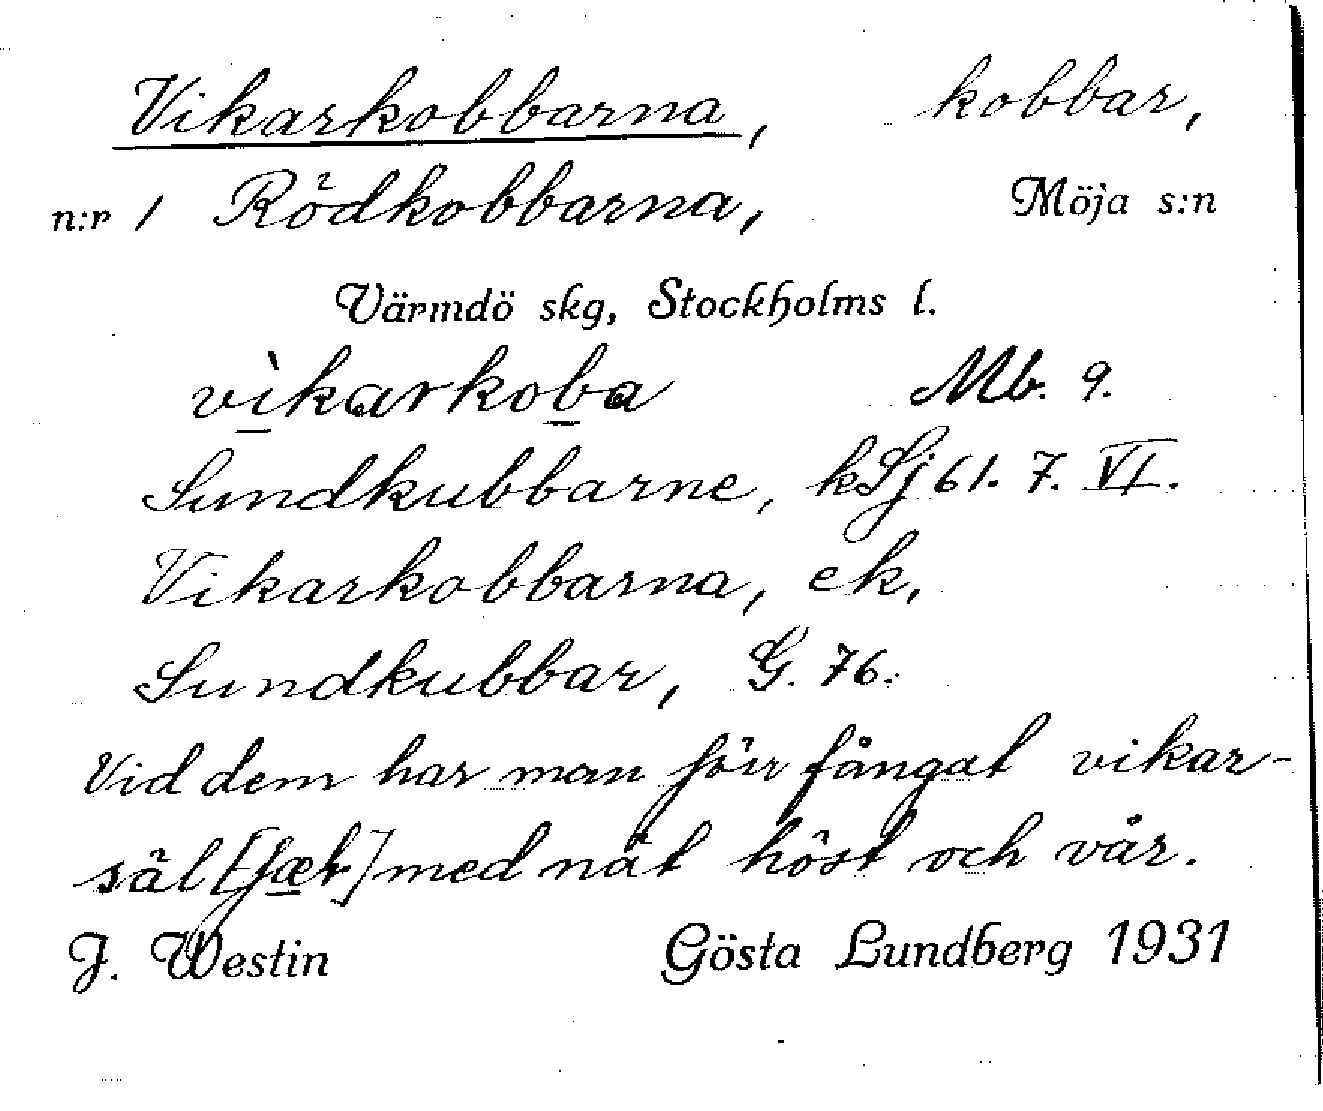 Vikarkobbarna, kobbar,
n:r 1 Rödkobbarna, Möja s:n
Värmdö skg, Stockholms l.
vìkarkoba Mb. 9.
Sundkubbarne, kSj 61. 7. VI.
Vikarkobbarna, ek,
Sundkubbar, G. 76.
Vid dem har man förr fångat vikar-
säl med nät höst och vår.
J. Westin Gösta Lundberg 1931